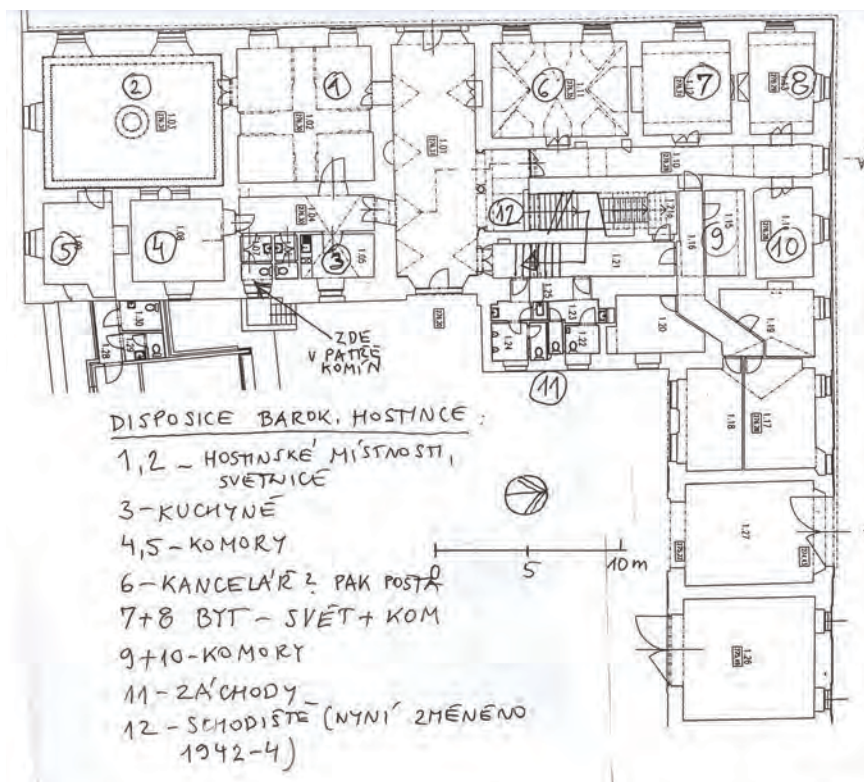 2
1
6
7
8
1.03
1.02
1.01
1.11
1.10
12
5
4
1.04
1.08
3
1.05
1.16
1.15
9
10
1.21
1.25
1.30
1.28
1.24
1.23
1.22
1.20
1.19
11
ZDE
V PATŘE
KOMÍN
1.18
1.17
1.27
1.26
DISPOSICE BAROK. HOSTINCE:
1,2 - HOSTINSKÉ MÍSTNOSTI,
SVĚTNICE
3 - KUCHYNĚ
4,5 - KOMORY
6 - KANCELÁŘ? PAK POŠTA
7+8 BYT - SVĚT + KOM
9+10 - KOMORY
11 - ZÁCHODY
12 - SCHODIŠTĚ (NYNÍ ZMĚNĚNO
1942-4)
0 5 10 m